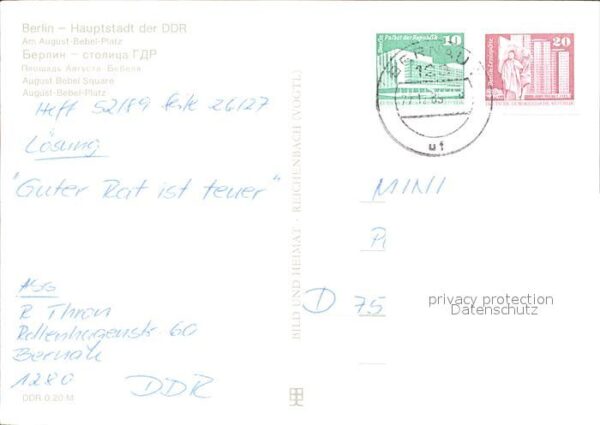 Berlin – Hauptstadt der DDR
Am August-Bebel-Platz
Берлин – столица ГДР
Площадь Августа Бебеля
August Bebel Square
August-Bebel-Platz
Heft 52/89 Seite 26/27
Lösung
"Guter Rat ist teuer"
Abs
R Thron
Bernau
1280 DDR
DDR 0,20 M
BILD UND HEIMAT · REICHENBACH (VOGTL)
10
Palast der Republik
20
BERNAU
128
uf
MINI
D 75
privacy protection
Datenschutz